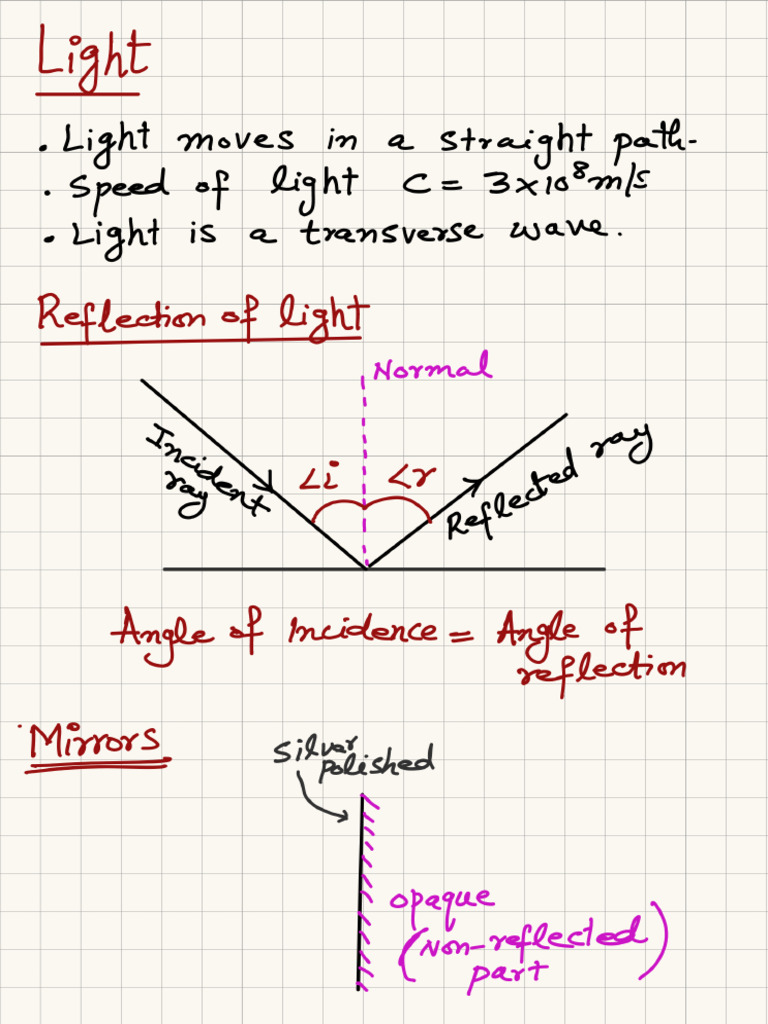 Light
. Light moves in a straight path-
. Speed of light C = 3×10⁸m/s
. Light is a transverse wave.
Reflection of light
Normal
Incident
ray
∠i
∠r
Reflected ray
Angle of Incidence = Angle of
reflection
Mirrors
Silvar
polished
opaque
(Non-reflected
part)